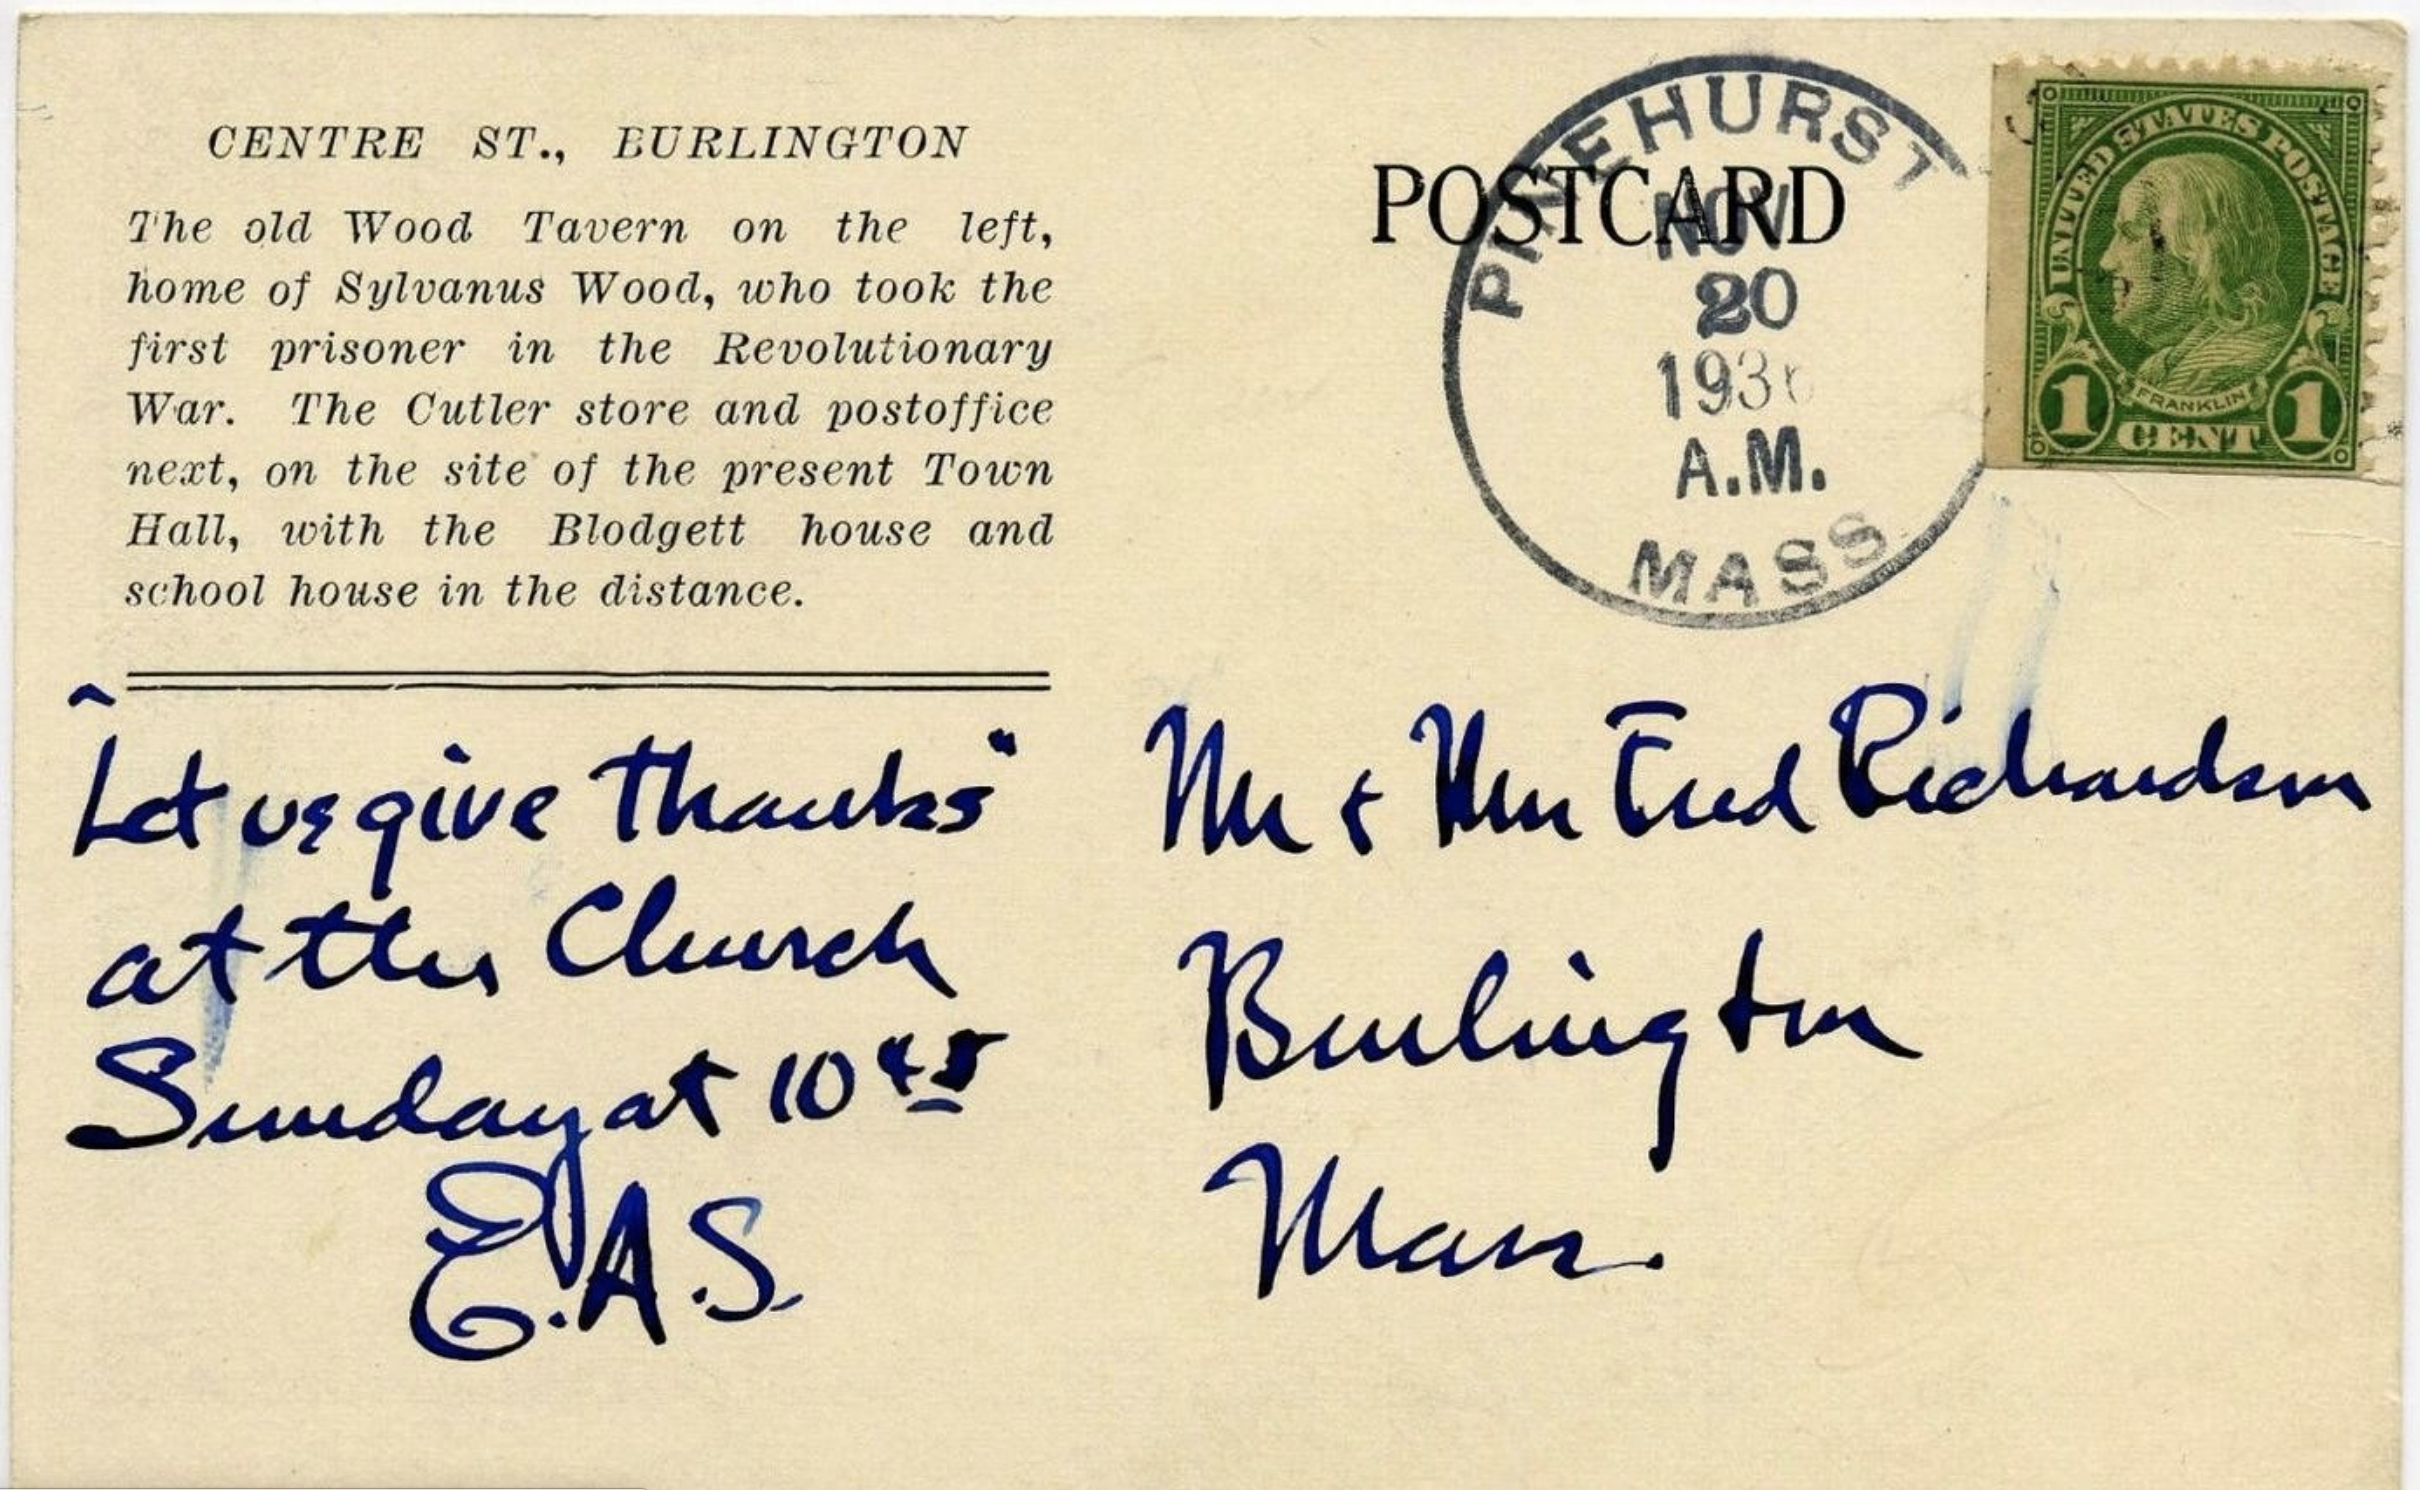 CENTRE ST., BURLINGTON
The old Wood Tavern on the left,
home of Sylvanus Wood, who took the
first prisoner in the Revolutionary
War. The Cutler store and postoffice
next, on the site of the present Town
Hall, with the Blodgett house and
school house in the distance.
"Let us give thanks"
at the Church
Sunday at 10 45
E.A.S.
POSTCARD
PINEHURST
NOV
20
193
A.M.
MASS
UNITED STATES POSTAGE
FRANKLIN
1 CENT 1
Mr & Mrs Fred Richardson
Burlington
Mass.